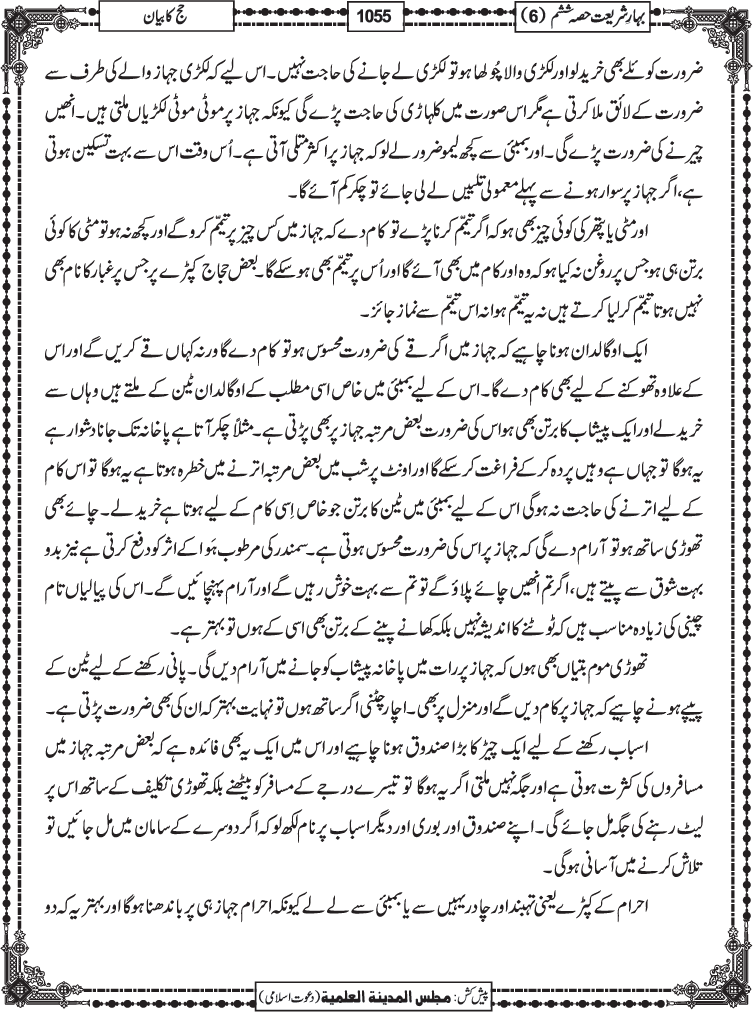 بہارِ شریعت حصہ ششم (6)
1055
حج کا بیان
ضرورت کوئلے بھی خرید لو اور لکڑی والا چُولھا ہو تو لکڑی لے جانے کی حاجت نہیں۔ اس لیے کہ لکڑی جہاز والے کی طرف سے
ضرورت کے لائق ملا کرتی ہے مگر اس صورت میں کلہاڑی کی حاجت پڑے گی کیونکہ جہاز پر موٹی موٹی لکڑیاں ملتی ہیں۔ انھیں
چیرنے کی ضرورت پڑے گی۔ اور بمبئی سے کچھ لیمو ضرور لے لو کہ جہاز پر اکثر متلی آتی ہے۔ اُس وقت اس سے بہت تسکین ہوتی
ہے، اگر جہاز پر سوار ہونے سے پہلے معمولی تلبیس لے لی جائے تو چکر کم آئے گا۔
اور مٹی یا پتھر کی کوئی چیز بھی ہو کہ اگر تیمّم کرنا پڑے تو کام دے کہ جہاز میں کس چیز پر تیمّم کرو گے اور کچھ نہ ہو تو مٹی کا کوئی
برتن ہی ہو جس پر روغن نہ کیا ہو کہ وہ اور کام میں بھی آئے گا اور اُس پر تیمّم بھی ہو سکے گا۔ بعض حجاج کپڑے پر جس پر غبار کا نام بھی
نہیں ہوتا تیمّم کر لیا کرتے ہیں نہ یہ تیمّم ہوا نہ اس تیمّم سے نماز جائز۔
ایک اوگالدان ہونا چاہیے کہ جہاز میں اگر قے کی ضرورت محسوس ہو تو کام دے گا ورنہ کہاں قے کریں گے اور اس
کے علاوہ تھوکنے کے لیے بھی کام دے گا۔ اس کے لیے بمبئی میں خاص اسی مطلب کے اوگالدان ٹین کے ملتے ہیں وہاں سے
خرید لے اور ایک پیشاب کا برتن بھی ہو اس کی ضرورت بعض مرتبہ جہاز پر بھی پڑتی ہے۔ مثلاً چکر آتا ہے پاخانہ تک جانا دشوار ہے
یہ ہوگا تو جہاں ہے وہیں پردہ کر کے فراغت کر سکے گا اور اونٹ پر شب میں بعض مرتبہ اترنے میں خطرہ ہوتا ہے یہ ہوگا تو اس کام
کے لیے اترنے کی حاجت نہ ہوگی اس کے لیے بمبئی میں ٹین کا برتن جو خاص اِسی کام کے لیے ہوتا ہے خرید لے۔ چائے بھی
تھوڑی ساتھ ہو تو آرام دے گی کہ جہاز پر اس کی ضرورت محسوس ہوتی ہے۔ سمندر کی مرطوب ہَوا کے اثر کو دفع کرتی ہے نیز بدو
بہت شوق سے پیتے ہیں، اگر تم انھیں چائے پلاؤ گے تو تم سے بہت خوش رہیں گے اور آرام پہنچائیں گے۔ اس کی پیالیاں تام
چینی کی زیادہ مناسب ہیں کہ ٹوٹنے کا اندیشہ نہیں بلکہ کھانے پینے کے برتن بھی اسی کے ہوں تو بہتر ہے۔
تھوڑی موم بتیاں بھی ہوں کہ جہاز پر رات میں پاخانہ پیشاب کو جانے میں آرام دیں گی۔ پانی رکھنے کے لیے ٹین کے
پیپے ہونے چاہیے کہ جہاز پر کام دیں گے اور منزل پر بھی۔ اچار چٹنی اگر ساتھ ہوں تو نہایت بہتر کہ ان کی بھی ضرورت پڑتی ہے۔
اسباب رکھنے کے لیے ایک چیڑ کا بڑا صندوق ہونا چاہیے اور اس میں ایک یہ بھی فائدہ ہے کہ بعض مرتبہ جہاز میں
مسافروں کی کثرت ہوتی ہے اور جگہ نہیں ملتی اگر یہ ہوگا تو تیسرے درجے کے مسافر کو بیٹھنے بلکہ تھوڑی تکلیف کے ساتھ اس پر
لیٹ رہنے کی جگہ مل جائے گی۔ اپنے صندوق اور بوری اور دیگر اسباب پر نام لکھ لو کہ اگر دوسرے کے سامان میں مل جائیں تو
تلاش کرنے میں آسانی ہوگی۔
احرام کے کپڑے یعنی تہبند اور چادر یہیں سے یا بمبئی سے لے لے کیونکہ احرام جہاز ہی پر باندھنا ہوگا اور بہتر یہ کہ دو
پیش کش: مجلس المدینۃ العلمیۃ (دعوتِ اسلامی)